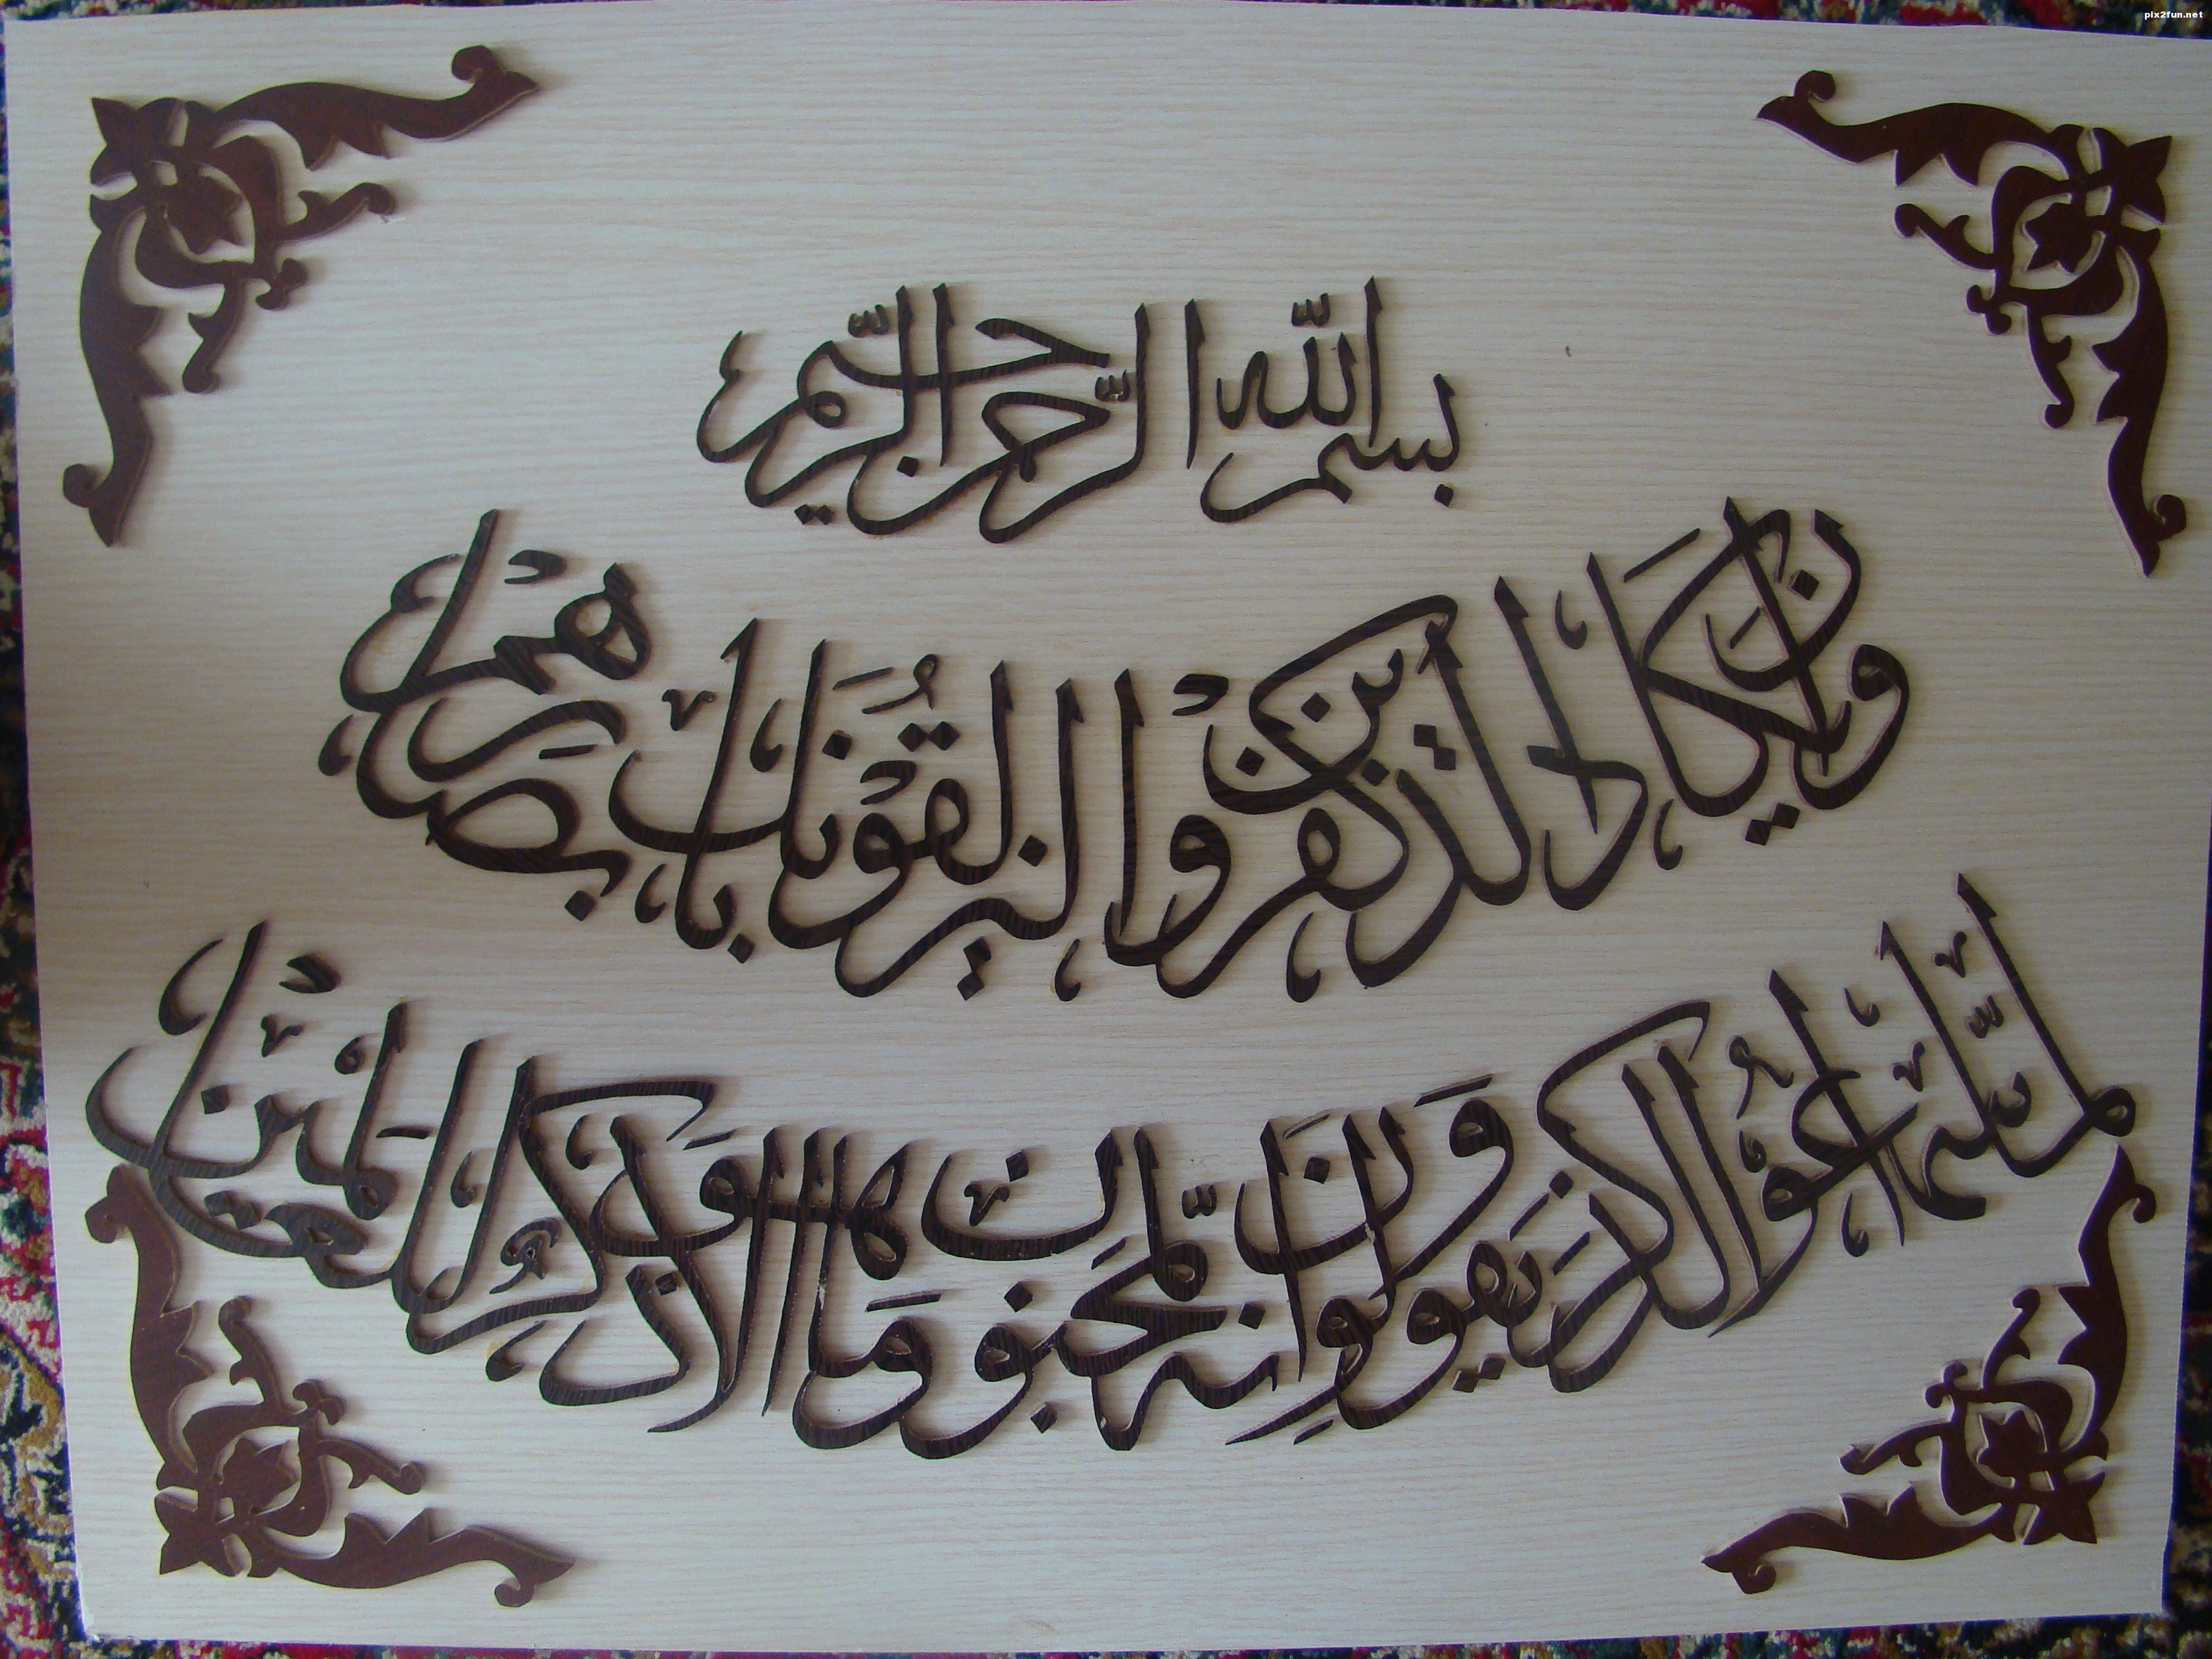 pix2fun.net
بسم الله الرحمن الرحيم
وان يكاد الذين كفروا ليزلقونك بابصارهم
لما سمعوا الذكر ويقولون انه لمجنون وما هو الا ذكر للعالمين